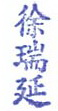 徐瑞延